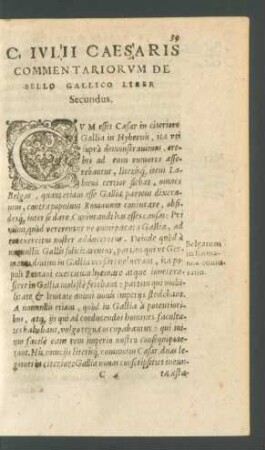 39
C. IVLII CAESARIS
COMMENTARIORVM DE
BELLO GALLICO LIBER
Secundus.
CVM esset Cæsar in citeriore
Gallia in Hybernis, ita vti
suprà demonstrauimus, crebri
ad eum rumores affe-
rebantur, literisq́; item La-
bieni certior fiebat, omnes
Belgas, quam tertiam esse Galliæ partem dixera-
mus, contra populum Romanum coniurare, obsi-
desq́; inter se dare. Coniurandi has esse causas: Pri
mùm, quòd vererentur ne omni pacata Gallia, ad
eos exercitus noster adduceretur. Deinde quòd à
nonnullis Gallis sollicitarentur, partim qui vt Ger-
manos diutius in Gallia versari nolebant, ita po
puli Romani exercitum hyemare atque inuetera-
scere in Gallia molestè ferebant: partim qui mobi-
litate & leuitate animi nouis imperijs studebant.
A nonnullis etiam, quòd in Gallia à potentiori-
bus, atq́; ijs qui ad conducendos homines faculta-
tes habebant, vulgò regna occupabantur: qui mi-
nus facilè eam rem imperio nostro consequi pote-
rant. His nuncijs literisq́; commotus Cæsar, duas le
giones in citeriore Gallia nouas conscripsit, &
Belgarum
in Roma-
nos coniu-
ratio.
C